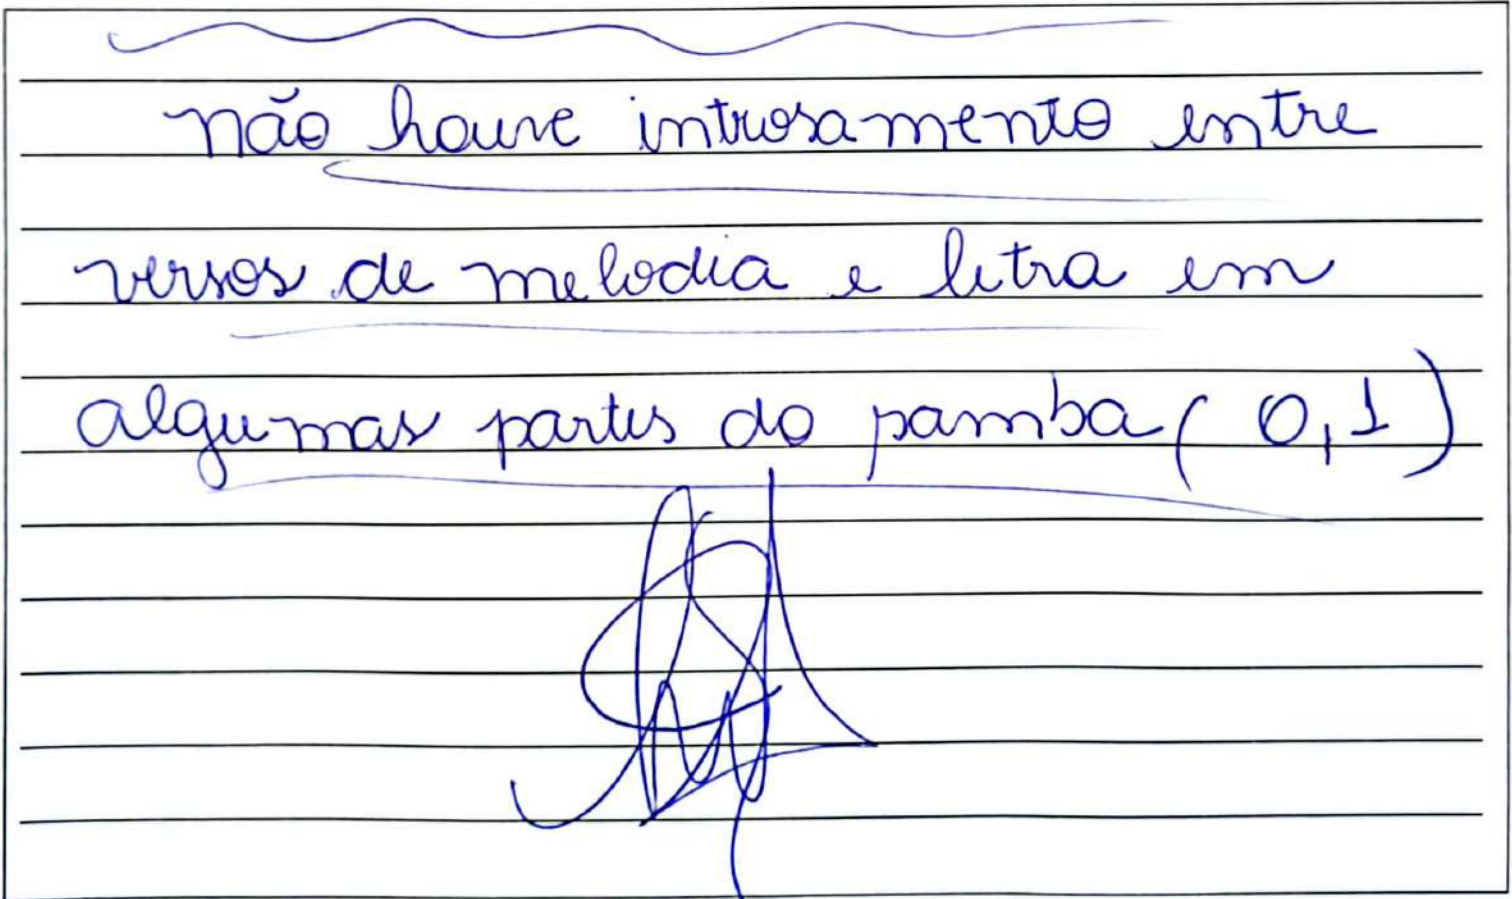 não houve introsamento entre
versos de melodia e letra em
algumas partes do samba ( 0,1 )